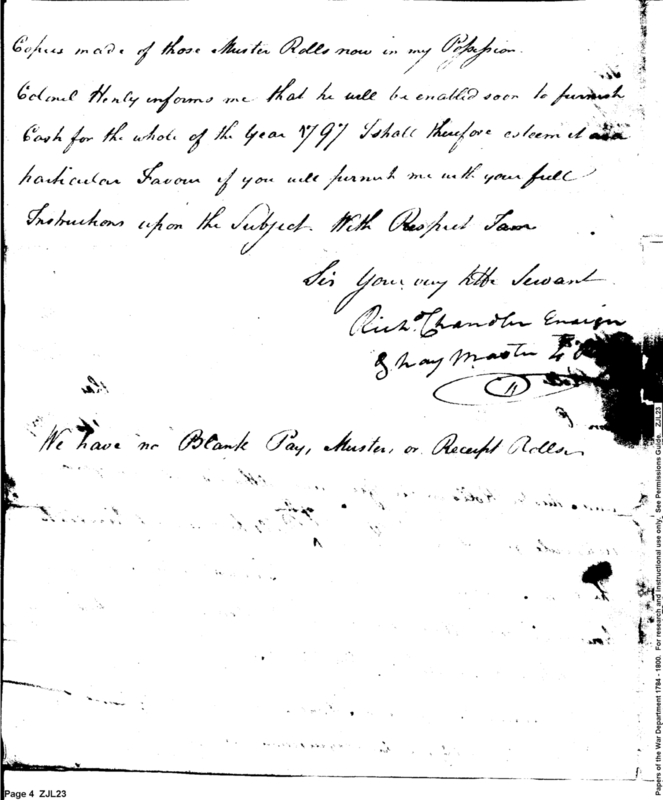 Copies made of those Muster Rolls now in my Possession.
Colonel Henly informs me that he will be enabled soon to furnish
Cash for the whole of the Year 1797 I shall therefore esteem it as a
particular Favour if you will furnish me with your full
Instructions upon the Subject. With Respect I am
Sir Your very Hble Servant
Richd Chandler Ensign
& Pay Master 4
We have no Blank Pay, Muster, or Receipt Rolls
Page 4 ZJL23
Papers of the War Department 1784 - 1800. For research and instructional use only. See Permissions Guide. ZJL23